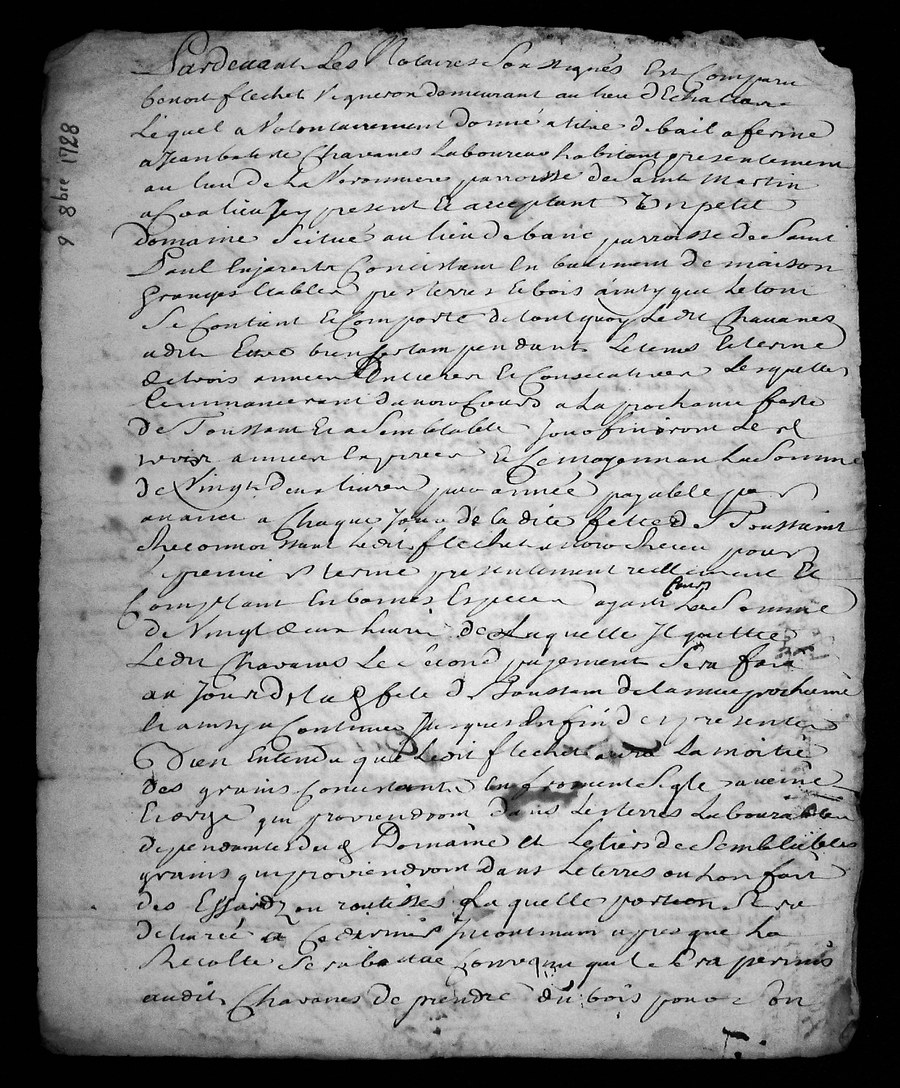 9 8bre 1728
Pardevant Les Notaires Soussignés Est Comparu
benoit flechet Vigneron demeurant au lieu dEchallas
Lequel a Volontairement donné a titre de bail a ferme
a Jean batiste Chavanes Laboureur habitant presentement
au lieu de La Veronniere parroisse de Saint Martin
a Coalieu Jcy present Et acceptant Un petit
domaine Scitué au lieu de banc parroisse de Saint
Paul Enjarest Concistant En batiment de maison
Granges Etables pres terres Et bois ainsy que Le tout
Se Contient Et Comporte de tout quoy Ledit Chavanes
a dit Estre bien Certain pendant Letems Et terme
de trois années Entieres Et Consecutives Lesquelles
Commanceront a la prochaine feste
de Toussaint Et a Semblable Jour finiront Les d
trois années Expirées Et Ce moyennant La Somme
de Vingt deux livres par année payable par
avance a Chaque Jour de la dite feste de Toussaint
Reconnoissant Ledit flechet avoir Receu pour
premier terme presentement reellement Et
Comptant En bonnes Especes ayant Cours La Somme
de Vingt deux livres de Laquelle Jl quitte
Ledit Chavanes Le Second payement Sera fait
au Jour de la d fete de Toussaint de lannée prochaine
Et ainsy a Continuer Jusques En fin des presentes
Bien Entendu que Ledit flechet aura La moitié
des grains Concistants En froment Segle aveine
Et orge qui proviendront dans Les terres Labourables
dependantes du d Domaine Et Le tiers de Semblables
grains qui proviendront dans Les terres ou Lon fait
des Essards ou routisses Laquelle portion Sera
delivrée Jncontinant apres que La
Recolte Sera batue Convenu quil Sera permis
audit Chavanes de prendre du bois pour Son